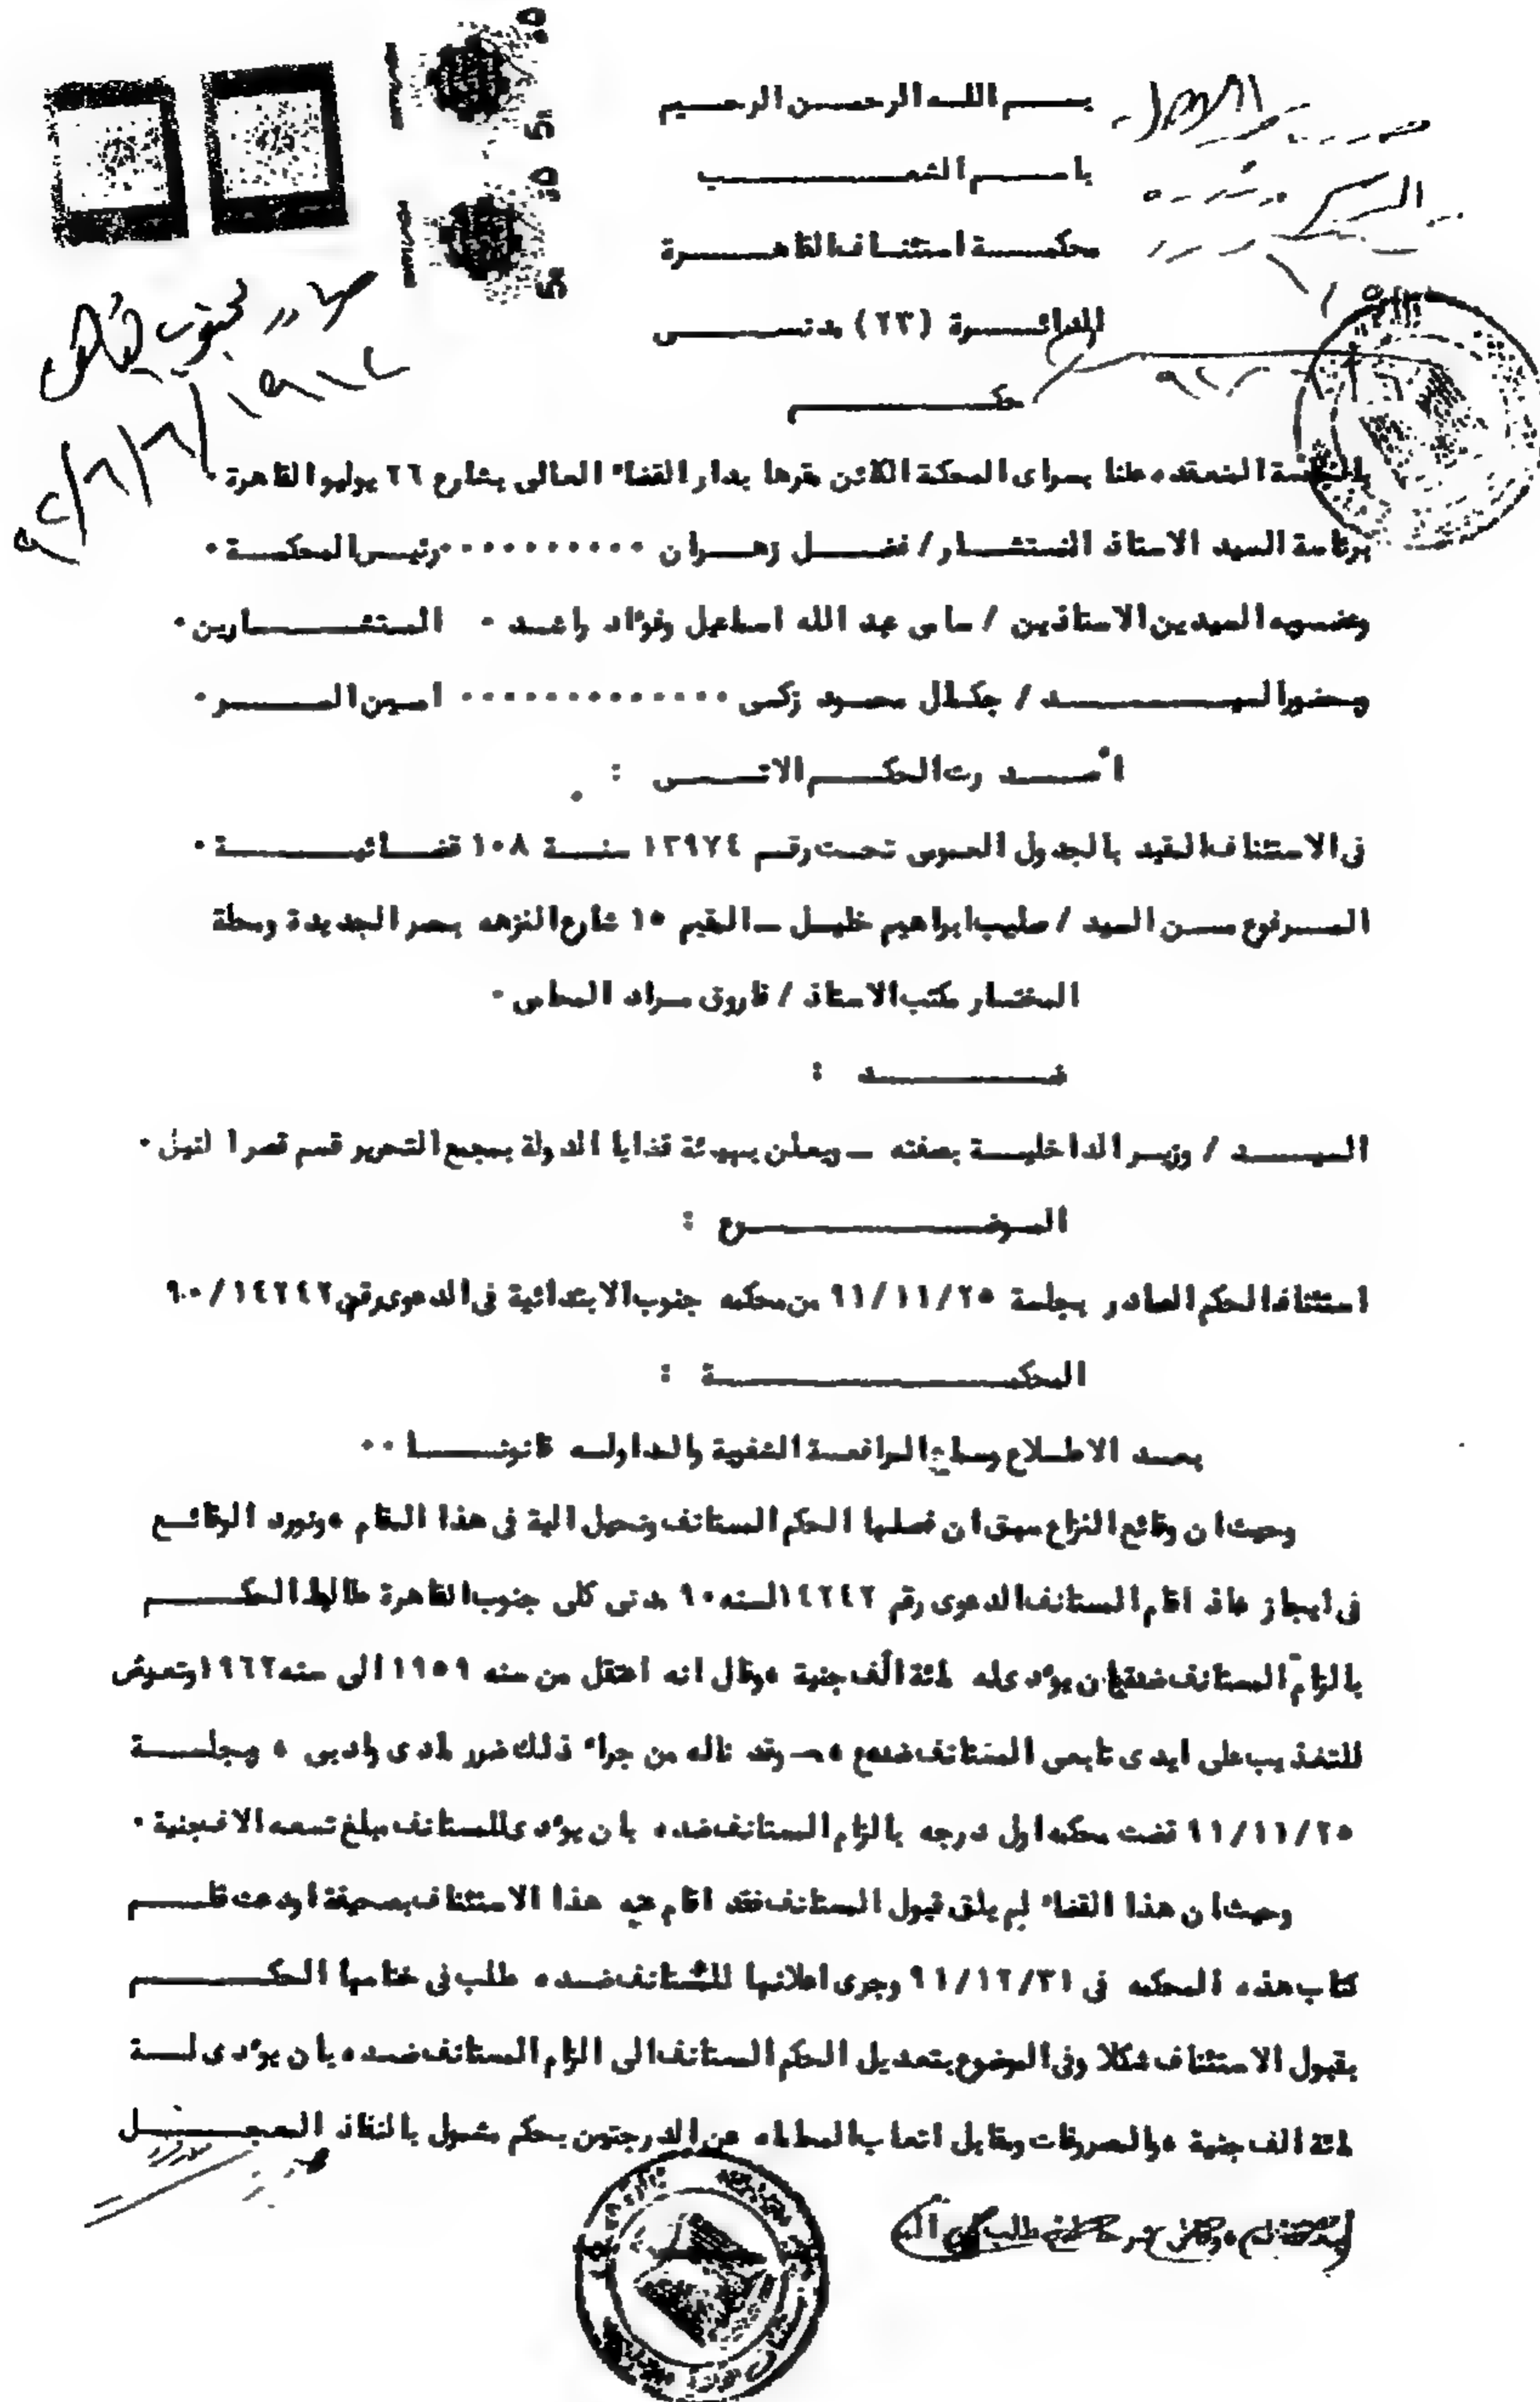 بسم الله الرحمن الرحيم
باسم الشعب
محكمة استئناف القاهرة
الدائرة (٢٣) مدنى
حكم
بالجلسة المنعقده علنا بسراى المحكمة الكائن مقرها بدار القضاء العالى بشارع ٢٦ يوليو القاهرة ٠
برئاسة السيد الاستاذ المستشار / فضل زهران ٠٠٠٠٠٠٠٠٠٠ رئيس المحكمة ٠
وعضويه السيدين الاستاذين / سامى عبد الله اسماعيل وفؤاد راشد ٠ المستشارين ٠
وحضور السيد / جمال محمود زكى ٠٠٠٠٠٠٠٠٠٠٠٠٠ امين السر ٠
أصدرت الحكم الاتى :
فى الاستئناف المقيد بالجدول العمومى تحت رقم ١٣٩٧٤ سنة ١٠٨ قضائية ٠
المرفوع من السيد / صليب ابراهيم خليل ـ المقيم ١٥ شارع النزهه بمصر الجديدة ومحلة
المختار مكتب الاستاذ / فاروق مراد المحامى ٠
ضد :
السيد / وزير الداخلية بصفته ـ ويعلن بهيئة قضايا الدولة بمجمع التحرير قسم قصر النيل ٠
الموضوع :
استئناف الحكم الصادر بجلسة ٩١/١١/٢٥ من محكمه جنوب الابتدائية فى الدعوى رقم ٩٠/١٤٢٤٢
المحكمة :
بعد الاطلاع وسماع المرافعة الشفوية والمداوله قانونا ٠٠
وحيث ان وقائع النزاع سبق ان فصلها الحكم المستانف ونحيل الية فى هذا المقام ، ونورد الوقائع
فى ايجاز اقام المستانف الدعوى رقم ١٤٢٤٢ لسنه ٩٠ مدنى كلى جنوب القاهرة طالبا الحكم
بالزام المستانف ضده ان يؤدى له مائة ألف جنية ، وقال انه اعتقل من سنه ١٩٥٩ الى سنه ١٩٦٢ وتعرض
للتعذيب على ايدى تابعى المستانف ضده ، وقد ناله من جراء ذلك ضرر مادى وادبى ، وبجلسة
٩١/١١/٢٥ قضت محكمه اول درجه بالزام المستانف ضده بان يؤدى للمستانف مبلغ تسعه الاف جنية ٠
وحيث ان هذا القضاء لم يلق قبول المستانف فقد اقام عنه هذا الاستئناف بصحيفة اودعت قلم
كتاب هذه المحكمه فى ٩١/١٢/٣١ وجرى اعلانها للمستانف ضده طلب فى ختامها الحكم
بقبول الاستئناف شكلا وفى الموضوع بتعديل الحكم المستانف الى الزام المستانف ضده بان يؤدى لة
مائة الف جنية ، والمصروفات ومقابل اتعاب المحاماه عن الدرجتين بحكم مشمول بالنفاذ المعجل